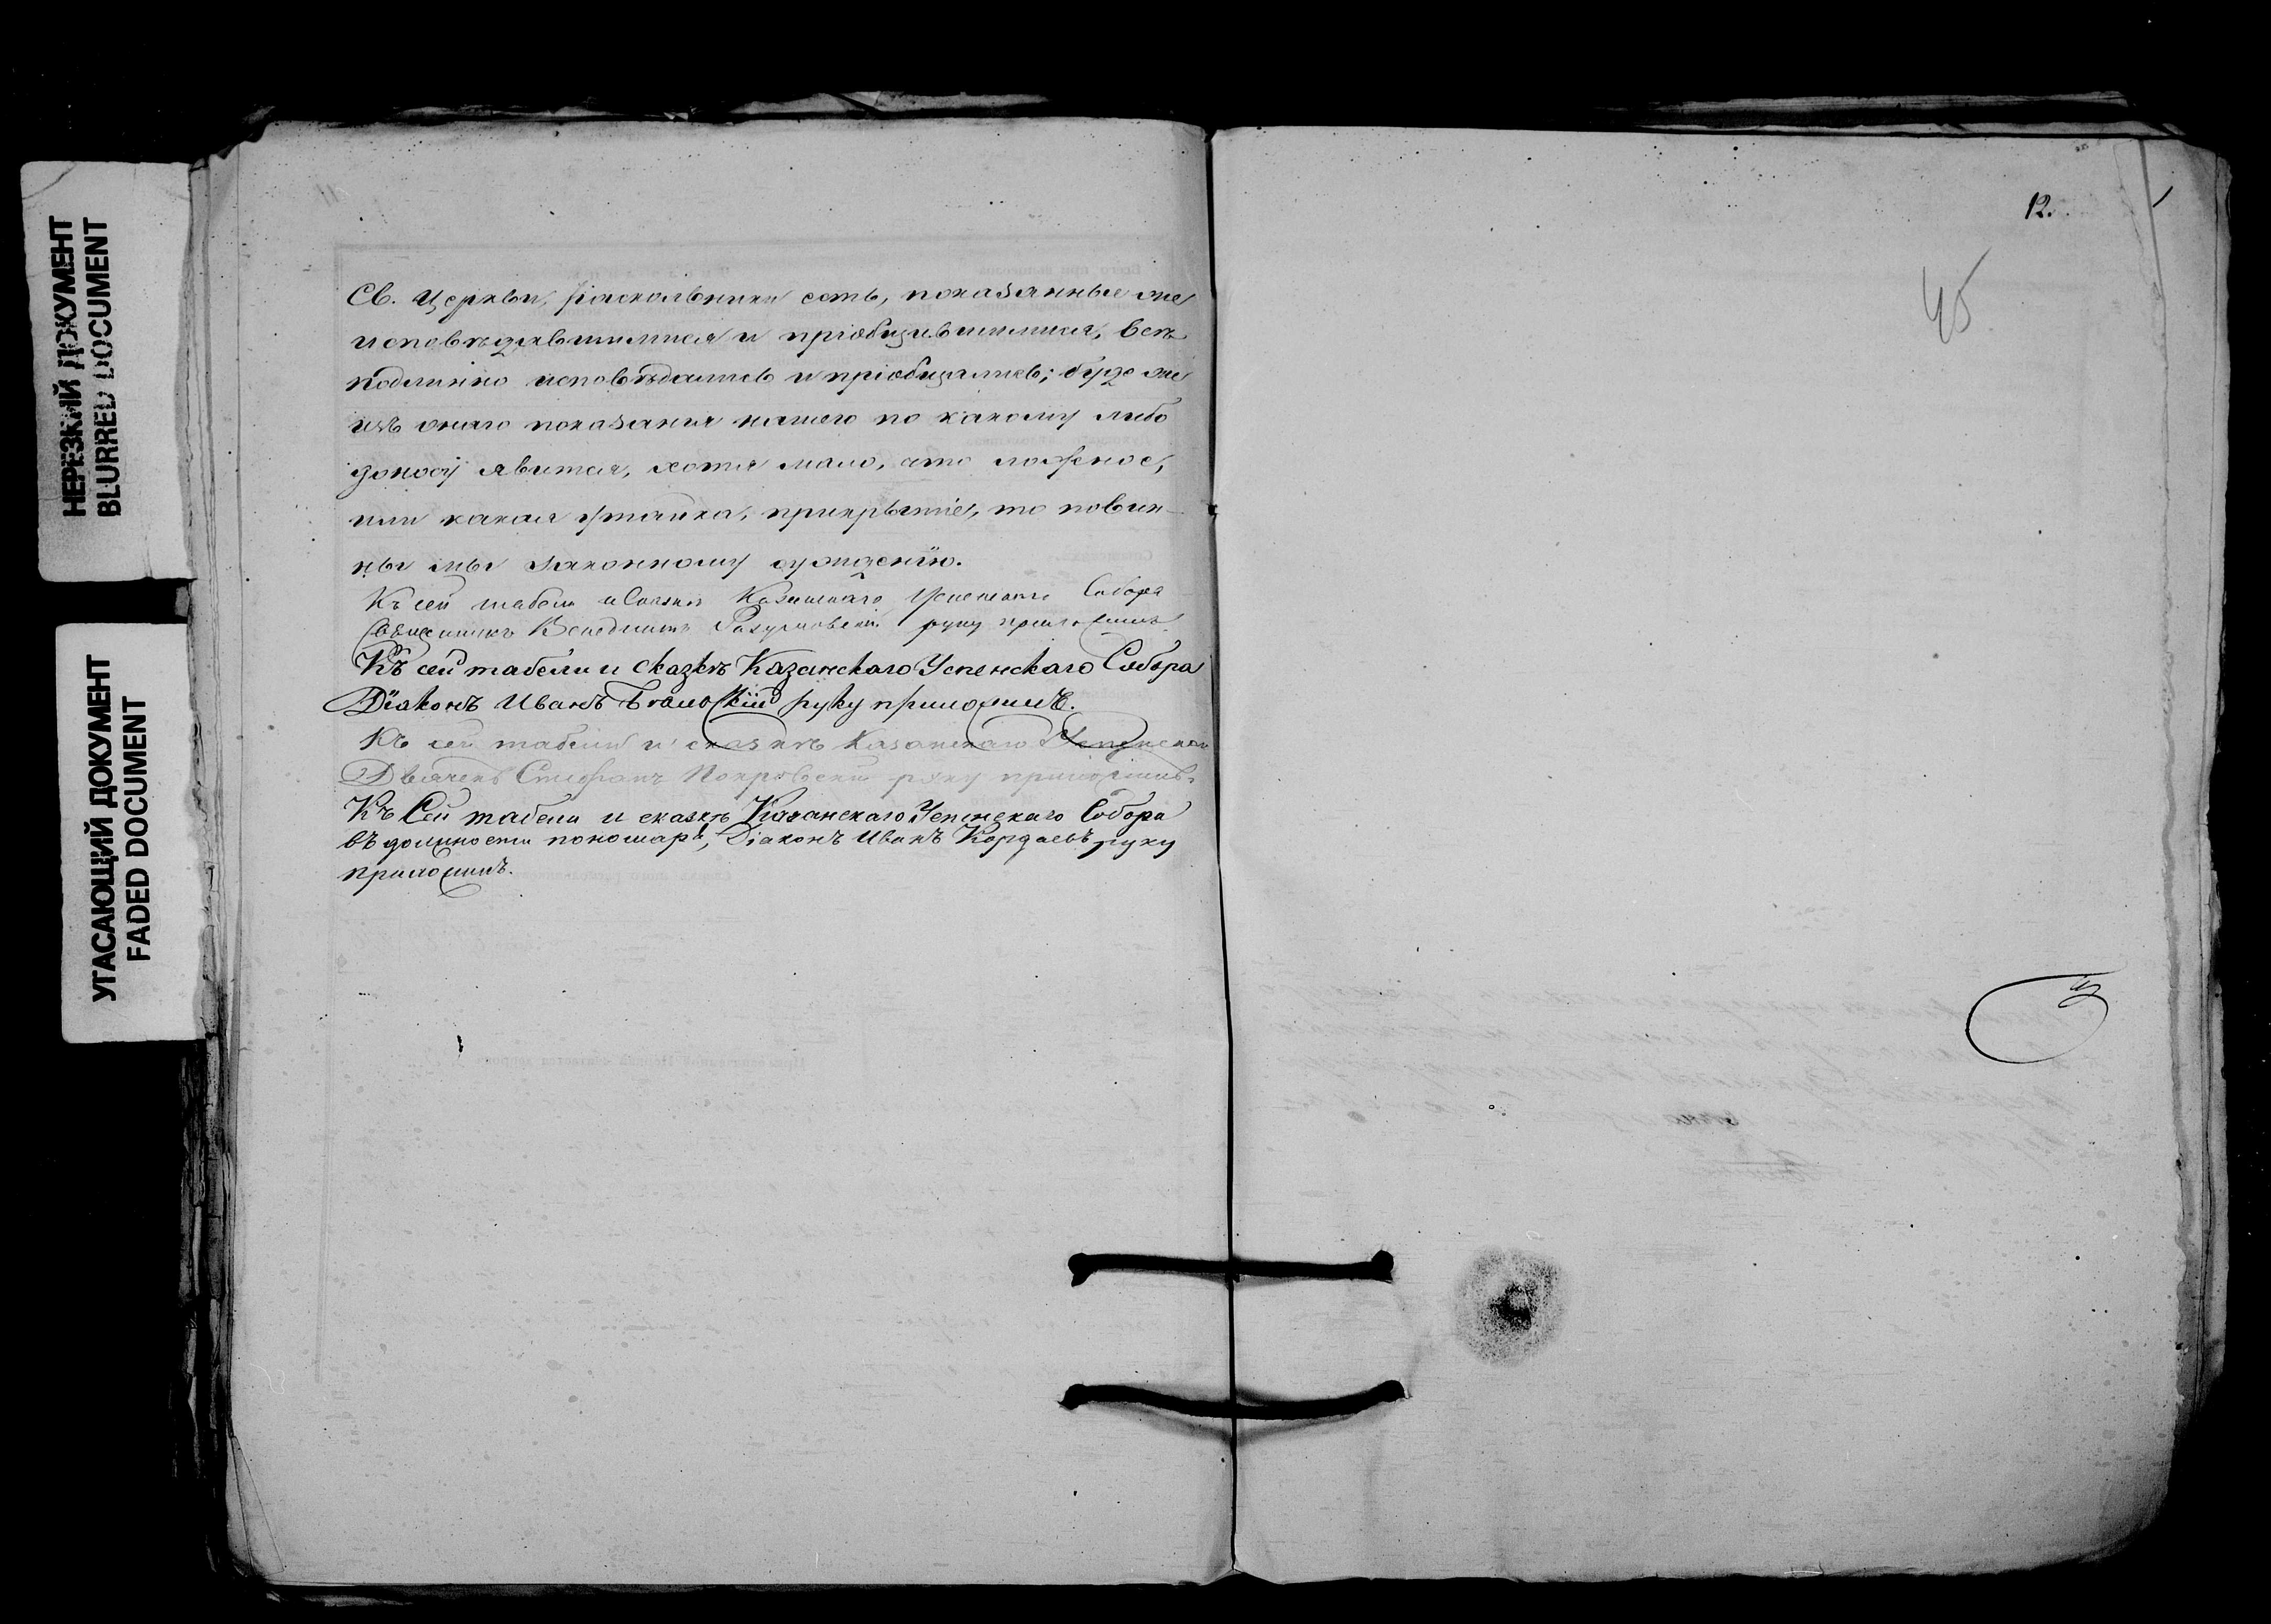 НЕРЕЗКИЙ ДОКУМЕНТ
BLURRED DOCUMENT
УГАСАЮЩИЙ ДОКУМЕНТ
FADED DOCUMENT
Св. Церкви, раскольники есть, показанные же
исповѣдавшимися и пріобщившимися, всѣ
подлинно исповѣдались и пріобщались; буде же
изъ онаго показания нашего по какому либо
доносу явится, хотя мало, что ложное,
или какая утайка, прикрытіе, то повин-
ны мы законному суждению.
Къ сей табели и Сказкѣ Казанскаго Успенскаго Собора
Священникъ Венедиктъ Разумовскій руку приложилъ.
Къ сей табели и сказкѣ Казанскаго Успенскаго Собора
Діаконъ Иванъ руку приложилъ.
Къ сей табели и сказкѣ Казанскаго Успенскаго
Дьячекъ Стефанъ Покровскій руку приложилъ.
Къ Сей табели и сказкѣ Казанскаго Успенскаго Собора
въ должности пономаря, Діаконъ Иванъ руку
приложилъ.
12.
45